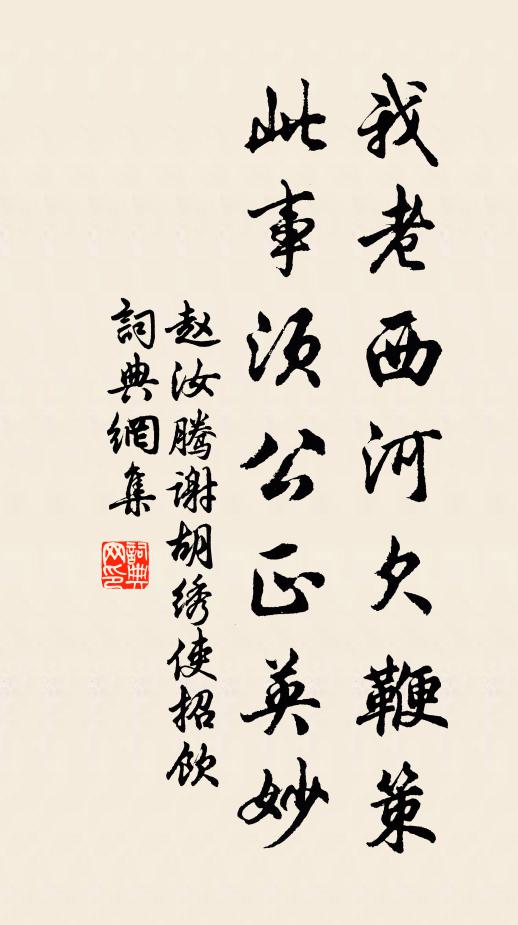 我老西河欠鞭策
此事须公正英妙
赵汝腾谢胡绣使招饮
詞典網集
詞典网印